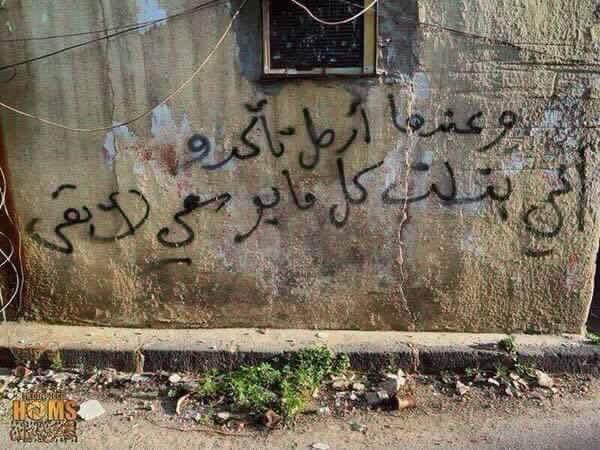 وعندما أرحل تأكدو
أني بذلت كل ما بوسعي لأبقى
HOMS